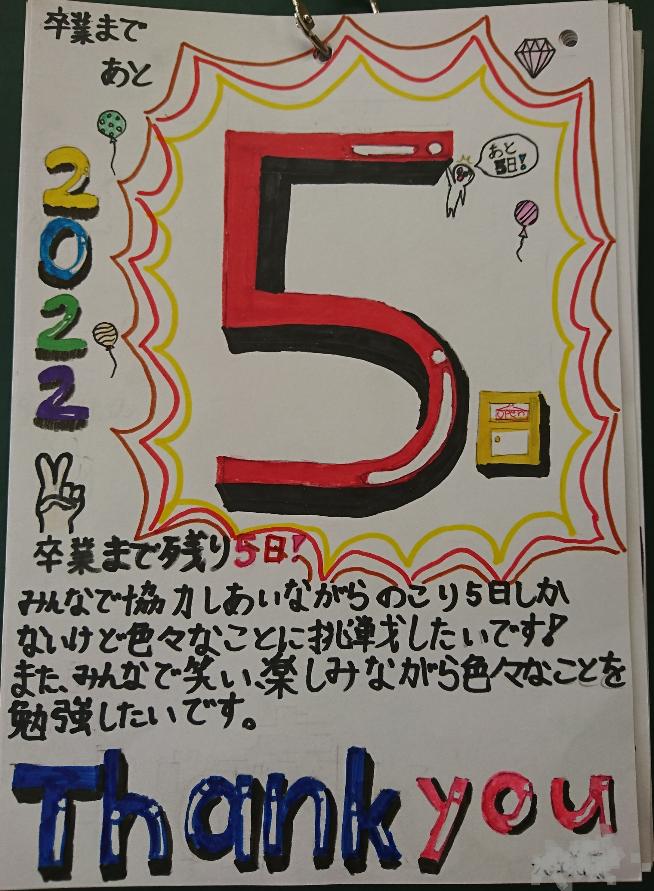 卒業まで
あと
5
あと
5日!
2022
OPEN
卒業まで残り5日!
みんなで協力しあいながらのこり5日しか
ないけど色々なことに挑戦したいです!
また、みんなで笑い、楽しみながら色々なことを
勉強したいです。
Thank you